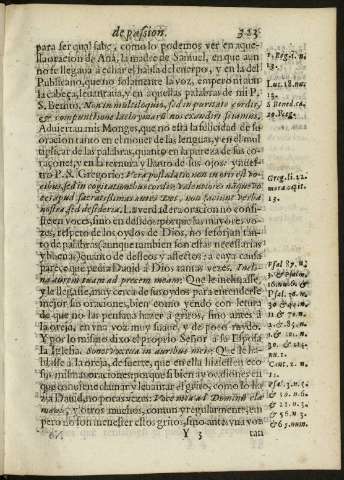 de passion. 323
para ser qual sabe, como lo podemos ver en aque-
lla oracion de Ana, la madre de Samuel, en que aun
no se llegaua à echar el habla del cuerpo, y en la del
Publicano, que no solamente la voz, empero ni aun
la cabeça, leuantaua, y en aquellas palabras de mi P.
S. Benito. Non in multiloquio, sed in puritate cordis,
& compunctione lachrymarũ nos exaudiri sciamus.
Aduiertan mis Monges, que no està la felicidad de su
oracion tanto en el moner de las lenguas, y en el mul
tiplicar de las palabras, quanto en la pureza de sus co-
raçones, y en la ternura y llanto de sus ojos y nues-
tro P. S. Gregorio: Vera postulatio non in oris est vo-
cibus, sed in cogitationibus cordis, valentiores náque vo
ces apud sacratissimas aures Dei, non faciunt verba
nostra, sed desideria. La verdadera oracion no consi-
ste en voces, sino en deseos; porque las mayores vo-
zes, respeto de los oydos de Dios, no se forjan tan-
to de palabras (aunque tambien son estas necessarias
y buenas) quanto de deseos y affectos: a cuya causa
parece que pedia Dauid à Dios tantas vezes. Incli-
na aurem tuam ad precem meam. Que le inclinasse,
y le llegasse, muy cerca de sus oydos para entenderse
mejor sus oraciones, bien como yendo con letura
de que no las pensaua hazer á gritos, sino antes á
la oreja, en vna voz muy suaue, y de poco ruydo.
Y por lo mismo dixo el proprio Señor à su Esposa
la Iglesia. Sonet vox tua in auribus meis: Que le ha-
blasse à la oreja, de suerte, que en ella hiziessen eco
sus mismas oraciones: porque si bien ay ocasiones en
que conuiene clamar y leuantar el grito, como lo ha
zia Dauid, no pocas vezes: Voce mea ad Dominũ cla-
maui, y otros muchos, comun y regularmente, em
pero no son menester estos gritos, sino antes vna voz
Y 3 tan
1. Reg. 1. n.
13.
Luc. 18. nu.
13.
S. Bened. ca.
20. Reg.
Greg. li. 22.
mora. capit.
13.
Psal. 87. n.
Psal. 70. n.
Cant. 2. n.
Psal. 3. n.
& 56. n. 3
& 65. num.